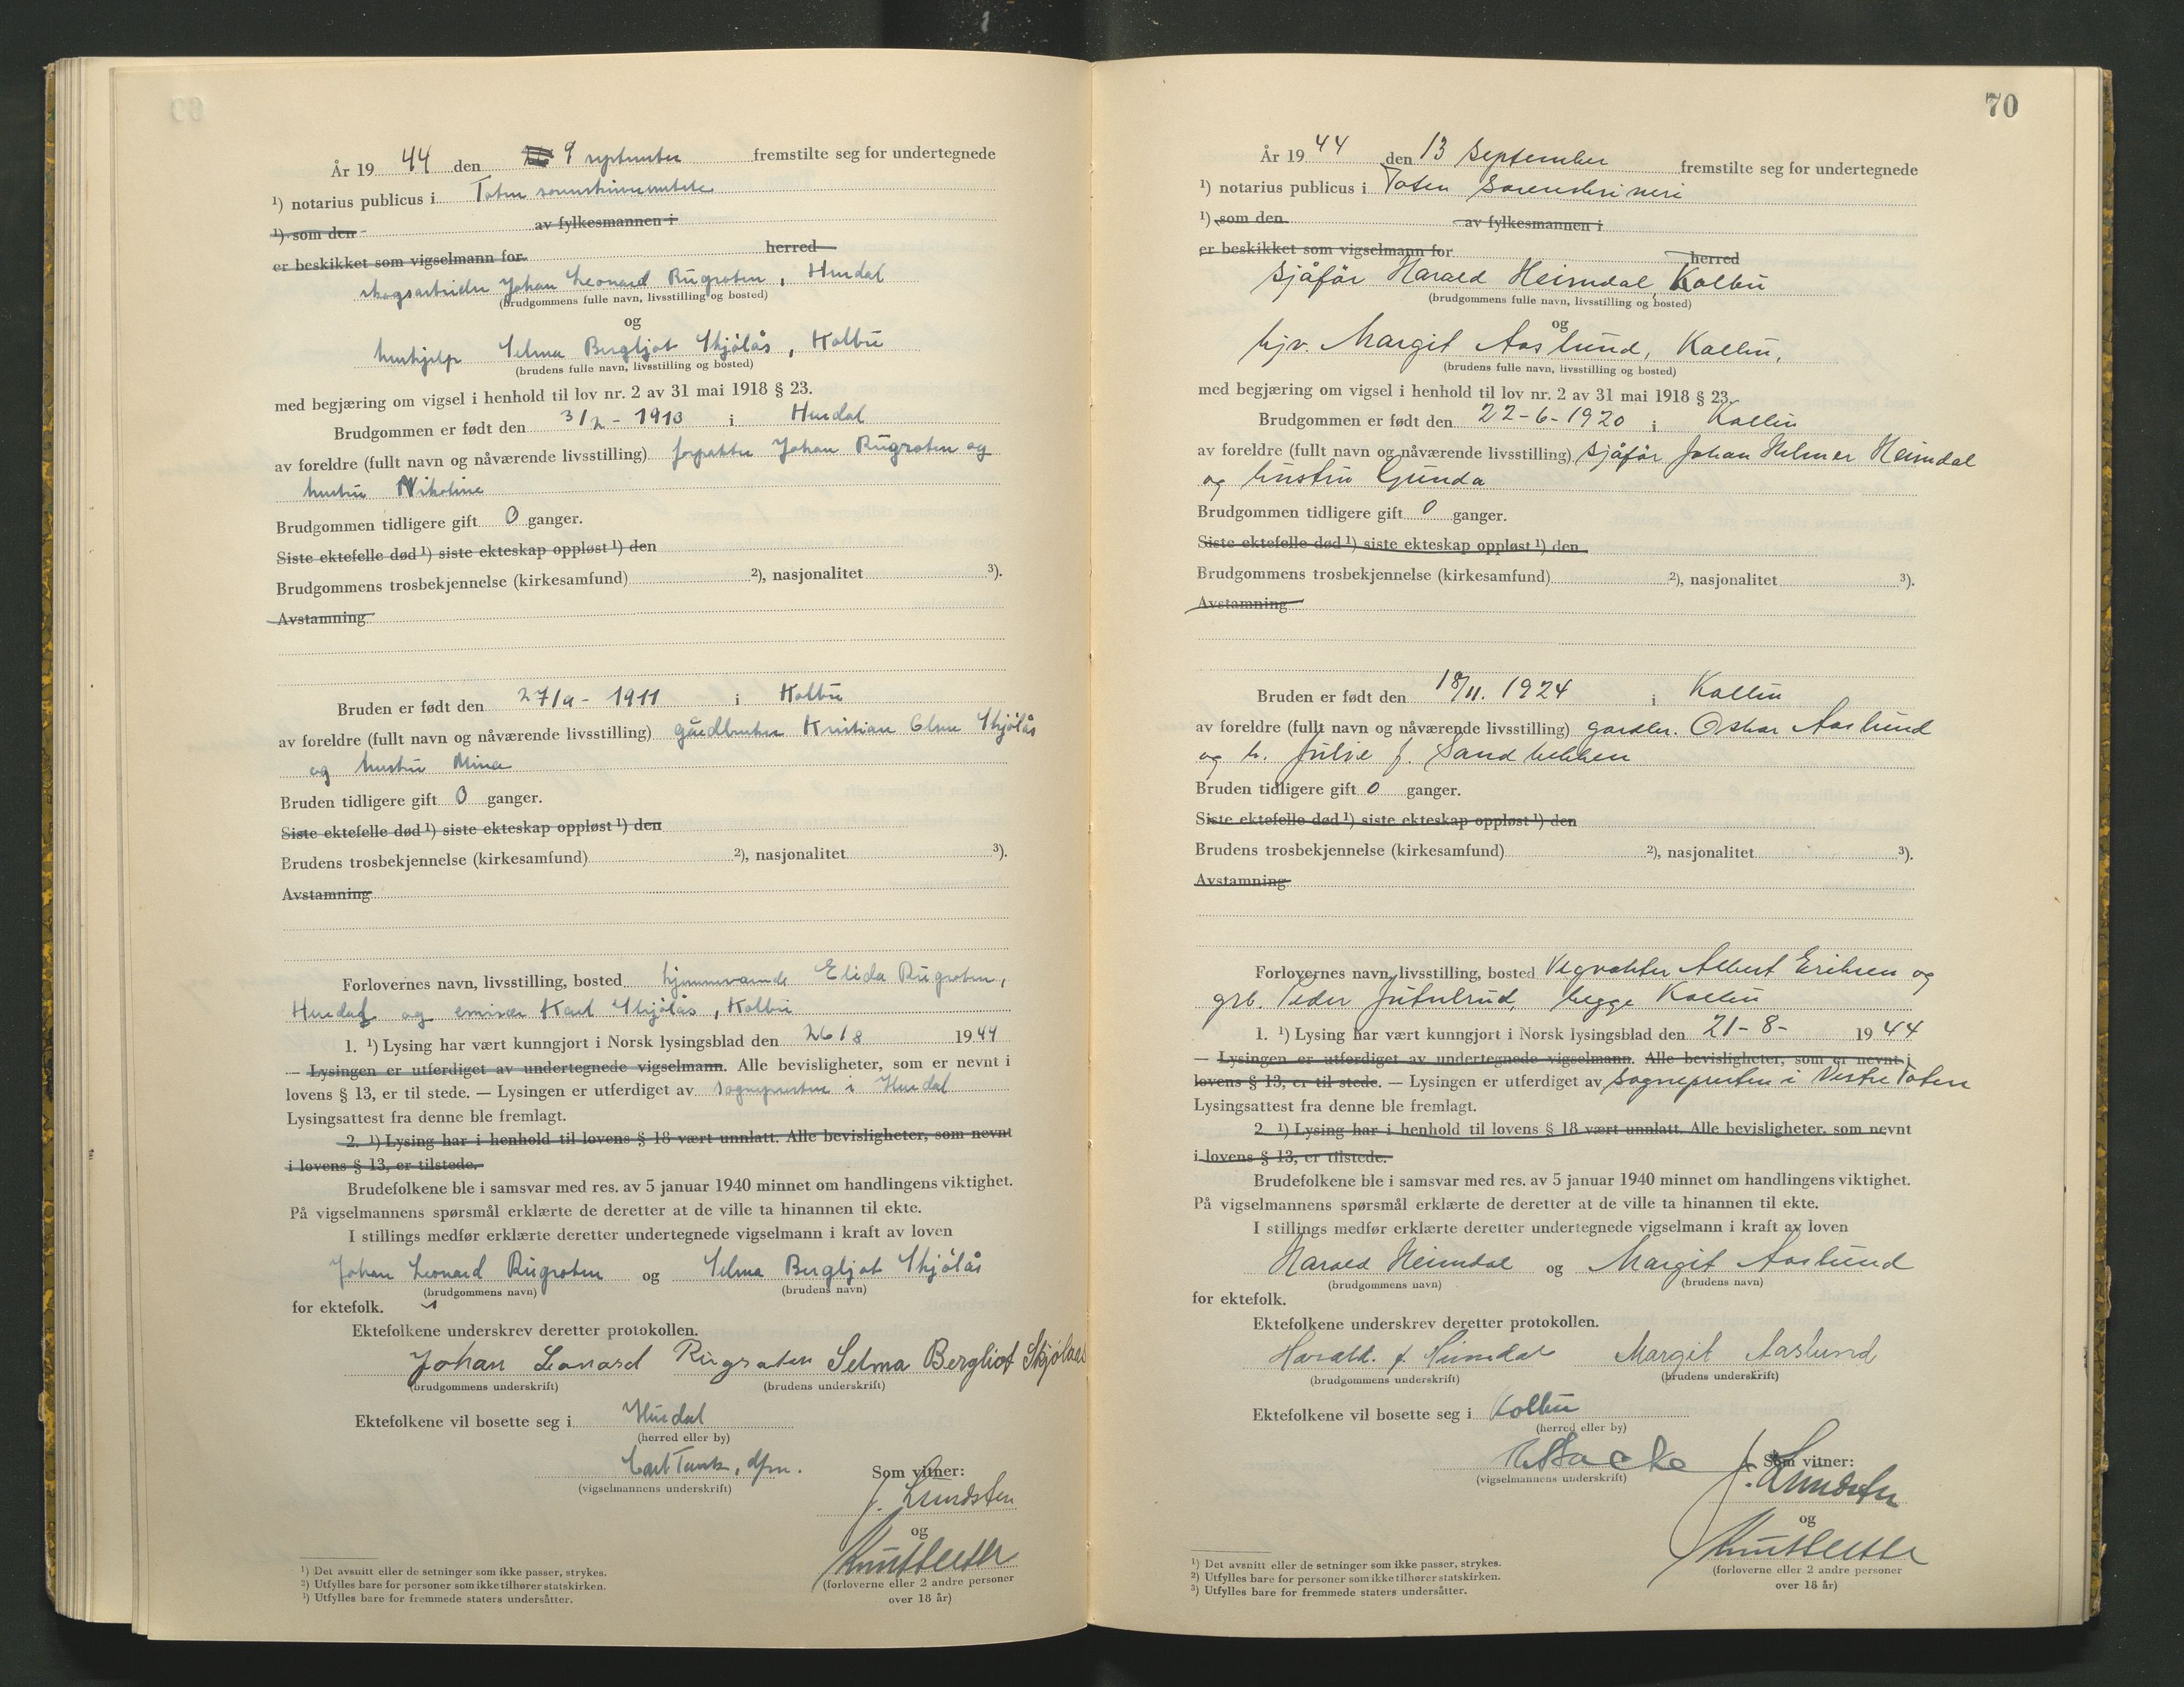 År 19 44 den 9 september fremstilte seg for undertegnede
¹) notarius publicus i Toten sorenskriverembete
¹) som den av fylkesmannen i
er beskikket som vigselmann for herred
skogsarbeider Johan Leonard Rugroten, Hurdal
(brudgommens fulle navn, livsstilling og bosted)
og
hushjelp Selma Bergljot Skjölås, Kolbu
(brudens fulle navn, livsstilling og bosted)
med begjæring om vigsel i henhold til lov nr. 2 av 31 mai 1918 § 23.
Brudgommen er født den 3/2 - 1913 i Hurdal
av foreldre (fullt navn og nåværende livsstilling) forpakter Johan Rugroten og
hustru Nikoline
Brudgommen tidligere gift 0 ganger.
Siste ektefelle død ¹) siste ekteskap oppløst ¹) den
Brudgommens trosbekjennelse (kirkesamfund) ²), nasjonalitet ³).
Avstamning
Bruden er født den 27/9 - 1911 i Kolbu
av foreldre (fullt navn og nåværende livsstilling) gårdbruker Kristian Olsen Skjölås
og hustru Mina
Bruden tidligere gift 0 ganger.
Siste ektefelle død ¹) siste ekteskap oppløst ¹) den
Brudens trosbekjennelse (kirkesamfund) ²), nasjonalitet ³).
Avstamning
Forlovernes navn, livsstilling, bosted hjemmeværende Elida Rugroten,
Hurdal og emissær Karl Skjölås, Kolbu
1. ¹) Lysing har vært kunngjort i Norsk lysingsblad den 26/8 1944
— Lysingen er utferdiget av undertegnede vigselmann. Alle bevisligheter, som er nevnt i
lovens § 13, er til stede. — Lysingen er utferdiget av sognepresten i Hurdal
Lysingsattest fra denne ble fremlagt.
2. ¹) Lysing har i henhold til lovens § 18 vært unnlatt. Alle bevisligheter, som nevnt
i lovens § 13, er tilstede.
Brudefolkene ble i samsvar med res. av 5 januar 1940 minnet om handlingens viktighet.
På vigselmannens spørsmål erklærte de deretter at de ville ta hinannen til ekte.
I stillings medfør erklærte deretter undertegnede vigselmann i kraft av loven
Johan Leonard Rugroten og Selma Bergljot Skjölås
(brudgommens navn) (brudens navn)
for ektefolk.
Ektefolkene underskrev deretter protokollen.
Johan Leonard Rugroten Selma Bergliot Skjølaas
(brudgommens underskrift) (brudens underskrift)
Ektefolkene vil bosette seg i Hurdal
(herred eller by)
Som vitner:
(vigselmannens underskrift)
J. Lundsten
og
(forloverne eller 2 andre personer
over 18 år)
¹) Det avsnitt eller de setninger som ikke passer, strykes.
²) Utfylles bare for personer som ikke tilhører statskirken.
³) Utfylles bare for fremmede staters undersåtter.
70
År 19 44 den 13 september fremstilte seg for undertegnede
¹) notarius publicus i Toten Sorenskriveri
¹) som den av fylkesmannen i
er beskikket som vigselmann for herred
sjåfør Harald Heimdal, Kolbu
(brudgommens fulle navn, livsstilling og bosted)
og
hjv. Margit Aaslund, Kolbu,
(brudens fulle navn, livsstilling og bosted)
med begjæring om vigsel i henhold til lov nr. 2 av 31 mai 1918 § 23.
Brudgommen er født den 22-6-1920 i Kolbu
av foreldre (fullt navn og nåværende livsstilling) sjåfør Johan Helmer Heimdal
og hustru Gunda
Brudgommen tidligere gift 0 ganger.
Siste ektefelle død ¹) siste ekteskap oppløst ¹) den
Brudgommens trosbekjennelse (kirkesamfund) ²), nasjonalitet ³).
Avstamning
Bruden er født den 18/11. 1924 i Kolbu
av foreldre (fullt navn og nåværende livsstilling) gardbr. Oskar Aaslund
og h. Julie f. Sandbekken
Bruden tidligere gift 0 ganger.
Siste ektefelle død ¹) siste ekteskap oppløst ¹) den
Brudens trosbekjennelse (kirkesamfund) ²), nasjonalitet ³).
Avstamning
Forlovernes navn, livsstilling, bosted Vegvokter Albert Eriksen og
grb. Peder Jutulrud, begge Kolbu
1. ¹) Lysing har vært kunngjort i Norsk lysingsblad den 21-8- 1944
— Lysingen er utferdiget av undertegnede vigselmann. Alle bevisligheter, som er nevnt i
lovens § 13, er til stede. — Lysingen er utferdiget av sognepresten i Vestre Toten
Lysingsattest fra denne ble fremlagt.
2 ¹) Lysing har i henhold til lovens § 18 vært unnlatt. Alle bevisligheter, som nevnt
i lovens § 13, er tilstede.
Brudefolkene ble i samsvar med res. av 5 januar 1940 minnet om handlingens viktighet.
På vigselmannens spørsmål erklærte de deretter at de ville ta hinannen til ekte.
I stillings medfør erklærte deretter undertegnede vigselmann i kraft av loven
Harald Heimdal og Margit Aaslund
(brudgommens navn) (brudens navn)
for ektefolk.
Ektefolkene underskrev deretter protokollen.
Harald. J. Heimdal Margit Aaslund
(brudgommens underskrift) (brudens underskrift)
Ektefolkene vil bosette seg i Kolbu
(herred eller by)
Som vitner:
(vigselmannens underskrift)
J. Lundsten
og
(forloverne eller 2 andre personer
over 18 år)
¹) Det avsnitt eller de setninger som ikke passer, strykes.
²) Utfylles bare for personer som ikke tilhører statskirken.
³) Utfylles bare for fremmede staters undersåtter.